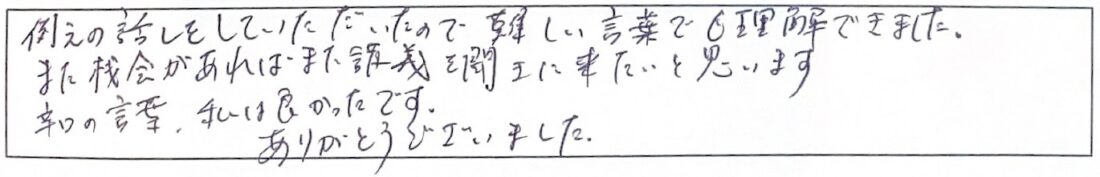 例えの話しをしていただいたので難しい言葉でも理解できました。
また機会があればまた講義を聞きに来たいと思います
辛口の言葉、私は良かったです。
ありがとうございました。